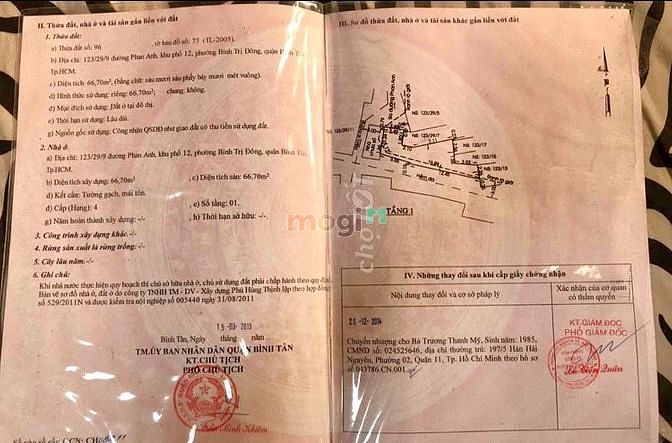 II. Thửa đất, nhà ở và tài sản gắn liền với đất
1. Thửa đất:
a) Thửa đất số: 96 , tờ bản đồ số: 75 (TL-2005).
b) Địa chỉ: 123/29/9 đường Phan Anh, khu phố 12, phường Bình Trị Đông, quận Bình Tân
Tp.HCM.
c) Diện tích: 66,70m², (bằng chữ: sáu mươi sáu phẩy bảy mươi mét vuông).
d) Hình thức sử dụng: riêng: 66,70m²; chung: không.
đ) Mục đích sử dụng: Đất ở tại đô thị.
e) Thời hạn sử dụng: Lâu dài.
g) Nguồn gốc sử dụng: Công nhận QSDĐ như giao đất có thu tiền sử dụng đất.
2. Nhà ở:
a) Địa chỉ: 123/29/9 đường Phan Anh, khu phố 12, phường Bình Trị Đông, quận Bình Tân
Tp.HCM.
b) Diện tích xây dựng: 66,70m² c) Diện tích sàn: 66,70m².
d) Kết cấu: Tường gạch, mái tôn.
đ) Cấp (Hạng): 4 e) Số tầng: 01.
g) Năm hoàn thành xây dựng: -/- h) Thời hạn sở hữu: -/-
3. Công trình xây dựng khác: -/-
4. Rừng sản xuất là rừng trồng: -/-
5. Cây lâu năm: -/-
6. Ghi chú:
Khi nhà nước thực hiện quy hoạch thì chủ sở hữu nhà ở, chủ sử dụng đất phải chấp hành theo quy định
Bản vẽ sơ đồ nhà ở, đất ở do công ty TNHH TM - DV - Xây dựng Phú Hùng Thịnh lập theo hợp đồng
529/2011N và được kiểm tra nội nghiệp số 005440 ngày 31/08/2011
Bình Tân, Ngày 15-03-2013
TM.ỦY BAN NHÂN DÂN QUẬN BÌNH TÂN
KT.CHỦ TỊCH
PHÓ CHỦ TỊCH
Trần Minh Khiêm
III. Sơ đồ thửa đất, nhà ở và tài sản khác gắn liền với đất
Ra đường Phan Anh
NS: 123/29/5
NS: 123/29/11
NS: 123/29/7
NS: 123/17
NS: 123/15
NS: 123/13
Hẻm đá
TẦNG 1
chợ tốt
mogi
IV. Những thay đổi sau khi cấp giấy chứng nhận
Nội dung thay đổi và cơ sở pháp lý
Xác nhận của cơ quan
có thẩm quyền
26-12-2014
Chuyển nhượng cho Bà Trương Thanh Mỹ, Sinh năm: 1985,
CMND số: 024525646, địa chỉ thường trú: 197/5 Hàn Hải
Nguyên, Phường 02, Quận 11, Tp. Hồ Chí Minh theo hồ sơ
số 043786.CN.001
KT.GIÁM ĐỐC
PHÓ GIÁM ĐỐC
Lê Tiến Quân